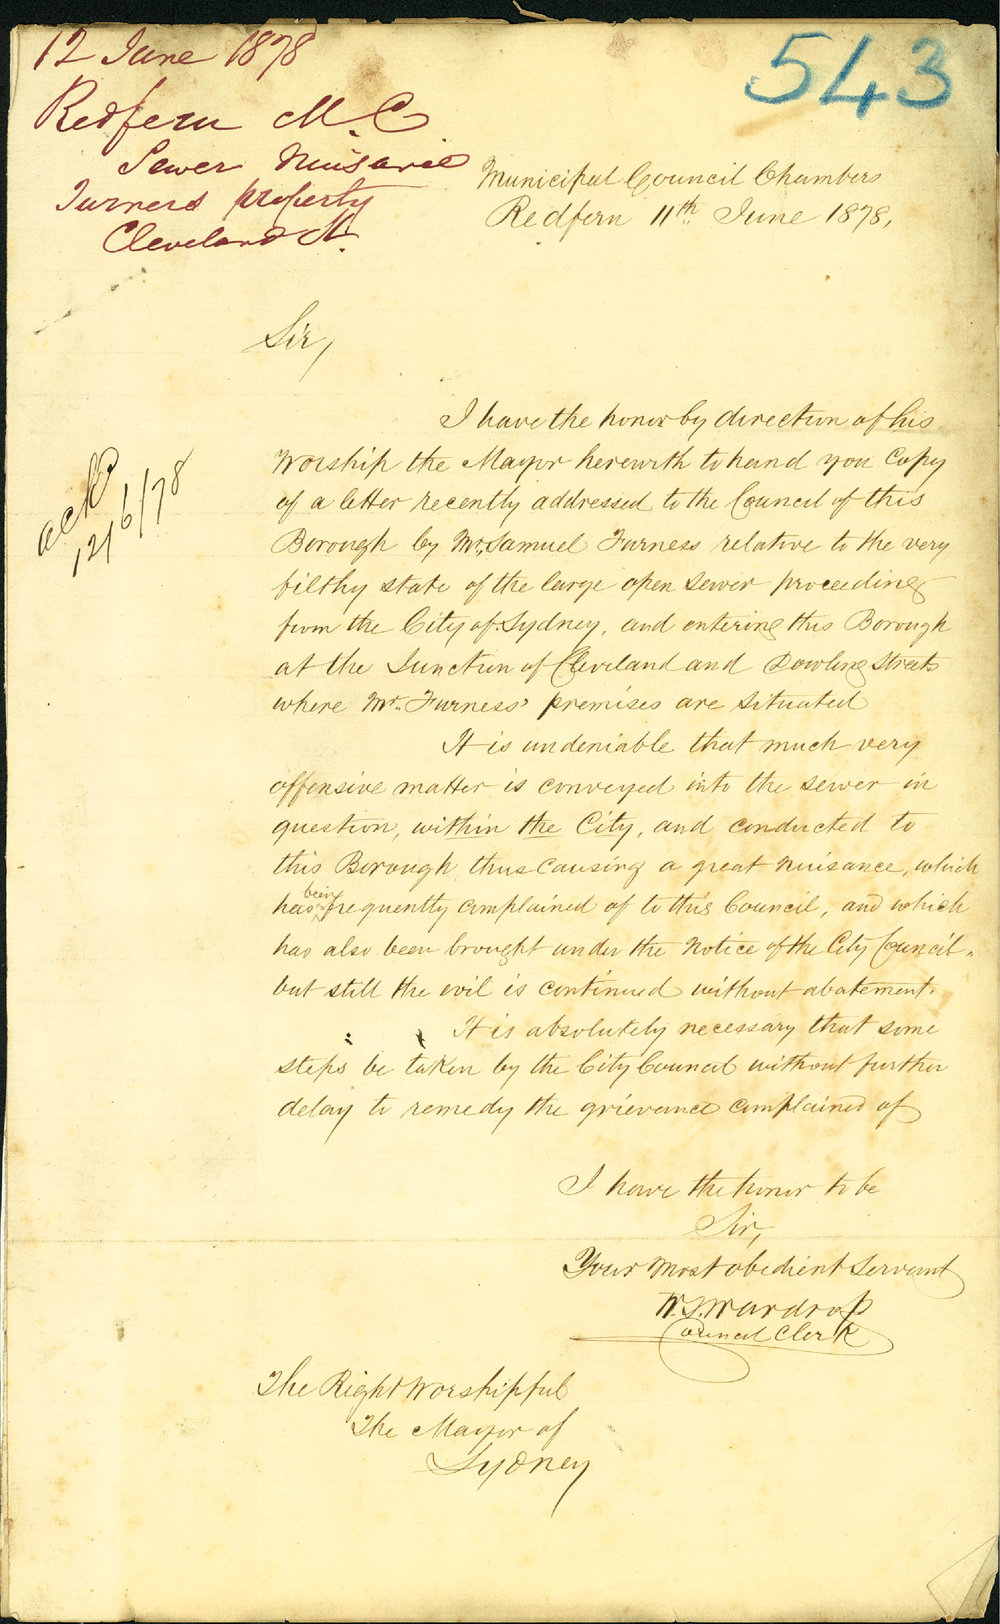 12 June 1878
Redfern M.C
Sewer Nuisance
Turners property
Cleveland St.
543
Municipal Council Chambers
Redfern 11th June 1878,
Sir,
ackd
12/6/78
I have the honor by direction of his
Worship the Mayor herewith to hand you Copy
of a letter recently addressed to the Council of this
Borough by Mr. Samuel Furness relative to the very
filthy state of the large open sewer proceeding
from the City of Sydney, and entering this Borough
at the Junction of Cleveland and Dowling Streets
where Mr. Furness' premises are situated
It is undeniable that much very
offensive matter is conveyed into the sewer in
question, within the City, and conducted to
this Borough, thus causing a great nuisance, which
has being frequently complained of to this Council, and which
has also been brought under the Notice of the City Council,
but still the evil is continued without abatement.
It is absolutely necessary that some
steps be taken by the City Council without further
delay to remedy the grievance complained of
I have the honor to be
Sir,
Your most obedient Servant
Wardrop
Council Clerk
The Right Worshipful
The Mayor of
Sydney